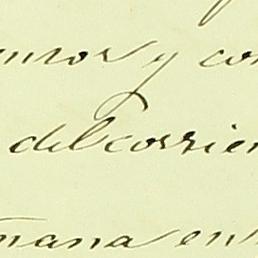 y con
del corrien
mana en